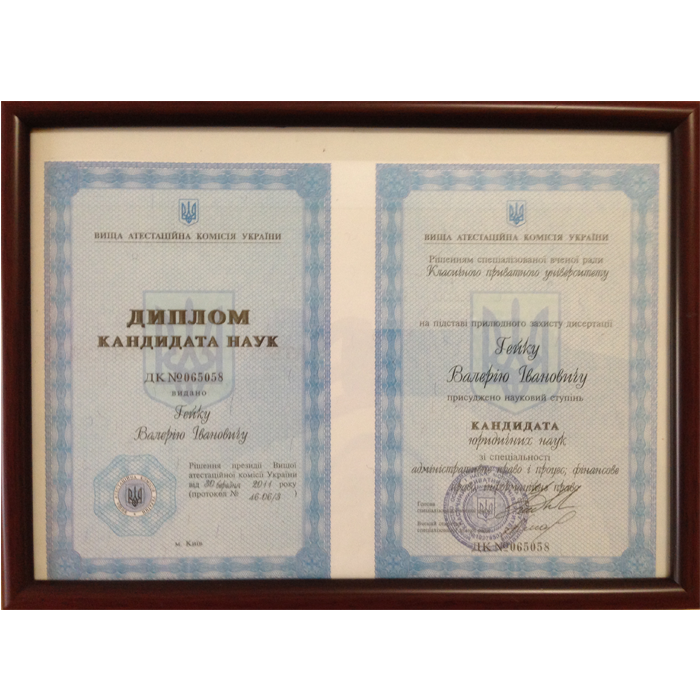 ВИЩА АТЕСТАЦІЙНА КОМІСІЯ УКРАЇНИ
ДИПЛОМ
КАНДИДАТА НАУК
ДК №065058
видано
Гейку
Валерію Івановичу
Рішення президії Вищої
атестаційної комісії України
від 30 березня 2011 року
(протокол № 16-06/3)
м. Київ
ВИЩА АТЕСТАЦІЙНА КОМІСІЯ УКРАЇНИ
Рішенням спеціалізованої вченої ради
Класичного приватного університету
на підставі прилюдного захисту дисертації
Гейку
Валерію Івановичу
присуджено науковий ступінь
КАНДИДАТА
юридичних наук
зі спеціальності
адміністративне право і процес, фінансове
право, інформаційне право
Голова
ДК №065058